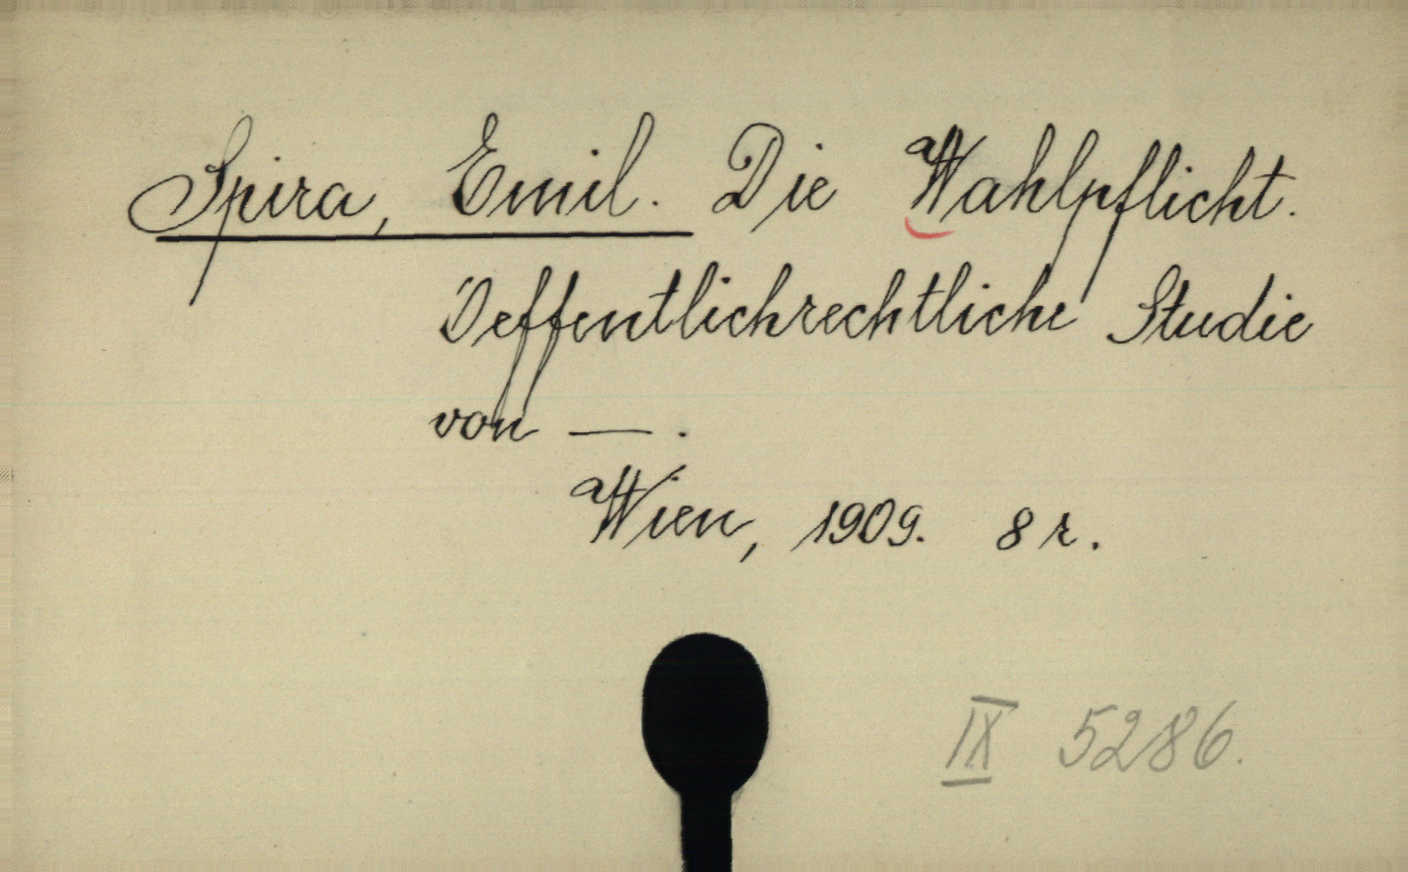 Spira, Emil. Die Wahlpflicht.
Oeffentlichrechtliche Studie
von — .
Wien, 1909. 8 r.
IX 5286.